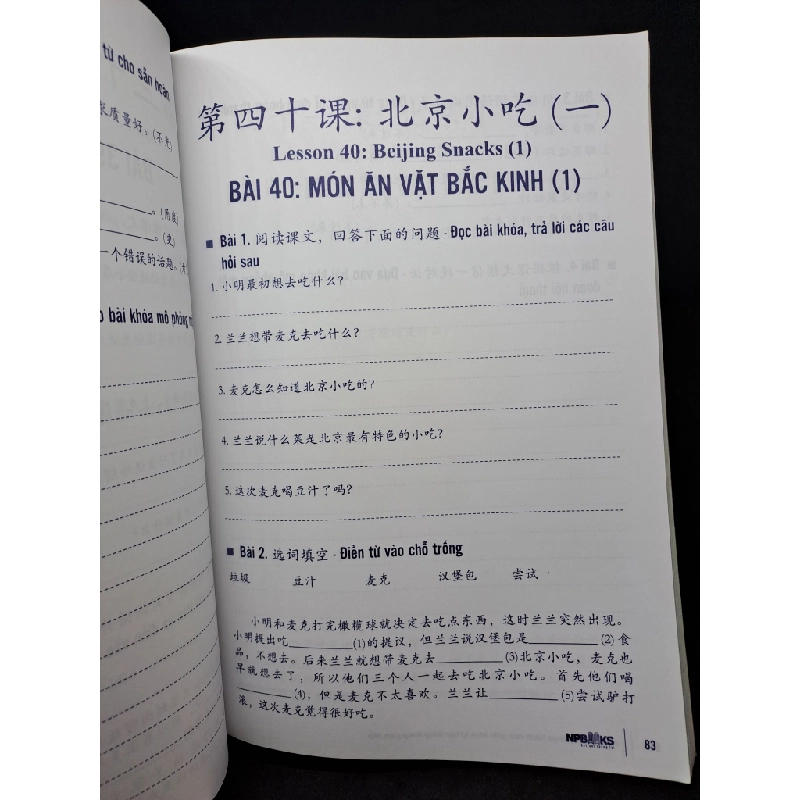 từ cho sẵn hoàn
质量好。(不光)
。(而是)
。(更)
一个错误的话题。
bài khóa mô phỏng
第四十课: 北京小吃 (一)
Lesson 40: Beijing Snacks (1)
BÀI 40: MÓN ĂN VẶT BẮC KINH (1)
Bài 1. 阅读课文，回答下面的问题 - Đọc bài khóa, trả lời các câu
hỏi sau
1. 小明最初想去吃什么?
2. 兰兰想带麦克去吃什么?
3. 麦克怎么知道北京小吃的?
4. 兰兰说什么菜是北京最有特色的小吃?
5. 这次麦克喝豆汁了吗?
Bài 2. 选词填空 - Điền từ vào chỗ trống
垃圾 豆汁 麦克 汉堡包 尝试
小明和麦克打完橄榄球就决定去吃点东西，这时兰兰突然出现。
小明提出吃________(1)的提议，但兰兰说汉堡包是________(2) 食
品，不想去。后来兰兰就想带麦克去________(3)北京小吃，麦克也
早就想去了；所以他们三个人一起去吃北京小吃。首先他们喝
________(4)，但是麦克不太喜欢。兰兰让________(5)尝试驴打
滚，这次麦克觉得很好吃。
NPBOOKS
83